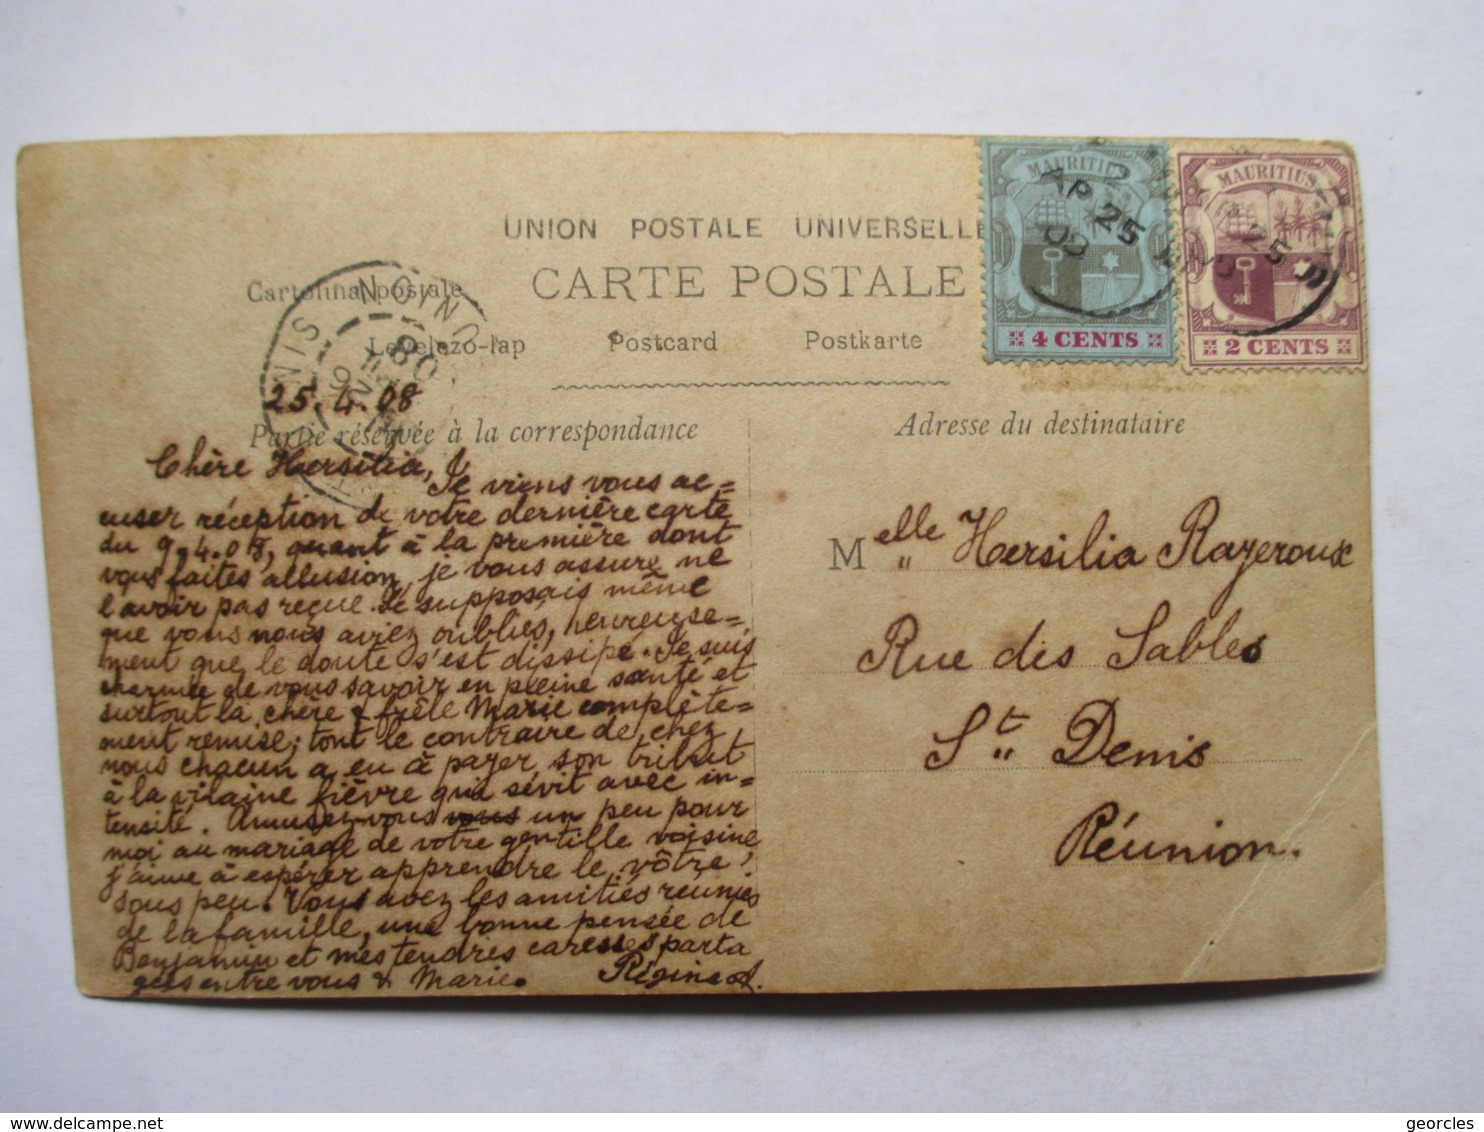 UNION POSTALE UNIVERSELLE
CARTE POSTALE
Cartolina postale
Levelezo-lap Postcard Postkarte
MAURITIUS
4 CENTS
MAURITIUS
2 CENTS
AP 25
25
NIS
08
25.4.08
Partie réservée à la correspondance
Chère Hersilia,
Je viens vous ac=
cuser réception de votre dernière carte
du 9.4.08, quant à la première dont
vous faites allusion, je vous assure ne
l'avoir pas reçue. Je supposais même
que vous nous aviez oubliés, heureuse=
ment que le doute s'est dissipé. Je suis
charmée de vous savoir en pleine santé et
surtout la chère & frêle Marie complète=
ment remise; tout le contraire de chez
nous chacun a eu à payer son tribut
à la vilaine fièvre qui sévit avec in=
tensité. Amusez-vous vous un peu pour
moi au mariage de votre gentille voisine
j'aime à espérer apprendre le vôtre
sous peu. Vous avez les amitiés reunies
de la famille, une bonne pensée de
Benjamin et mes tendres caresses parta
gées entre vous & Marie. Régina A.
Adresse du destinataire
Melle Hersilia Rayeroux
Rue des Sables
St Denis
Réunion.
georcles